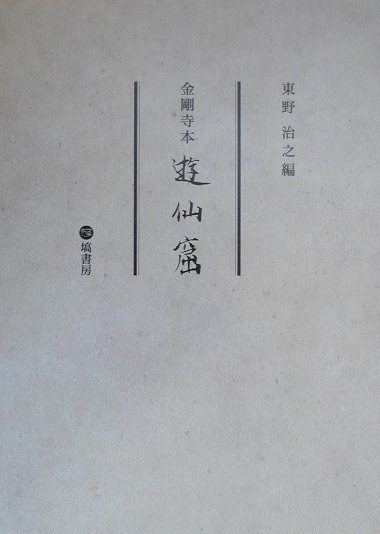 東野 治之編
金剛寺本 遊仙窟
塙書房